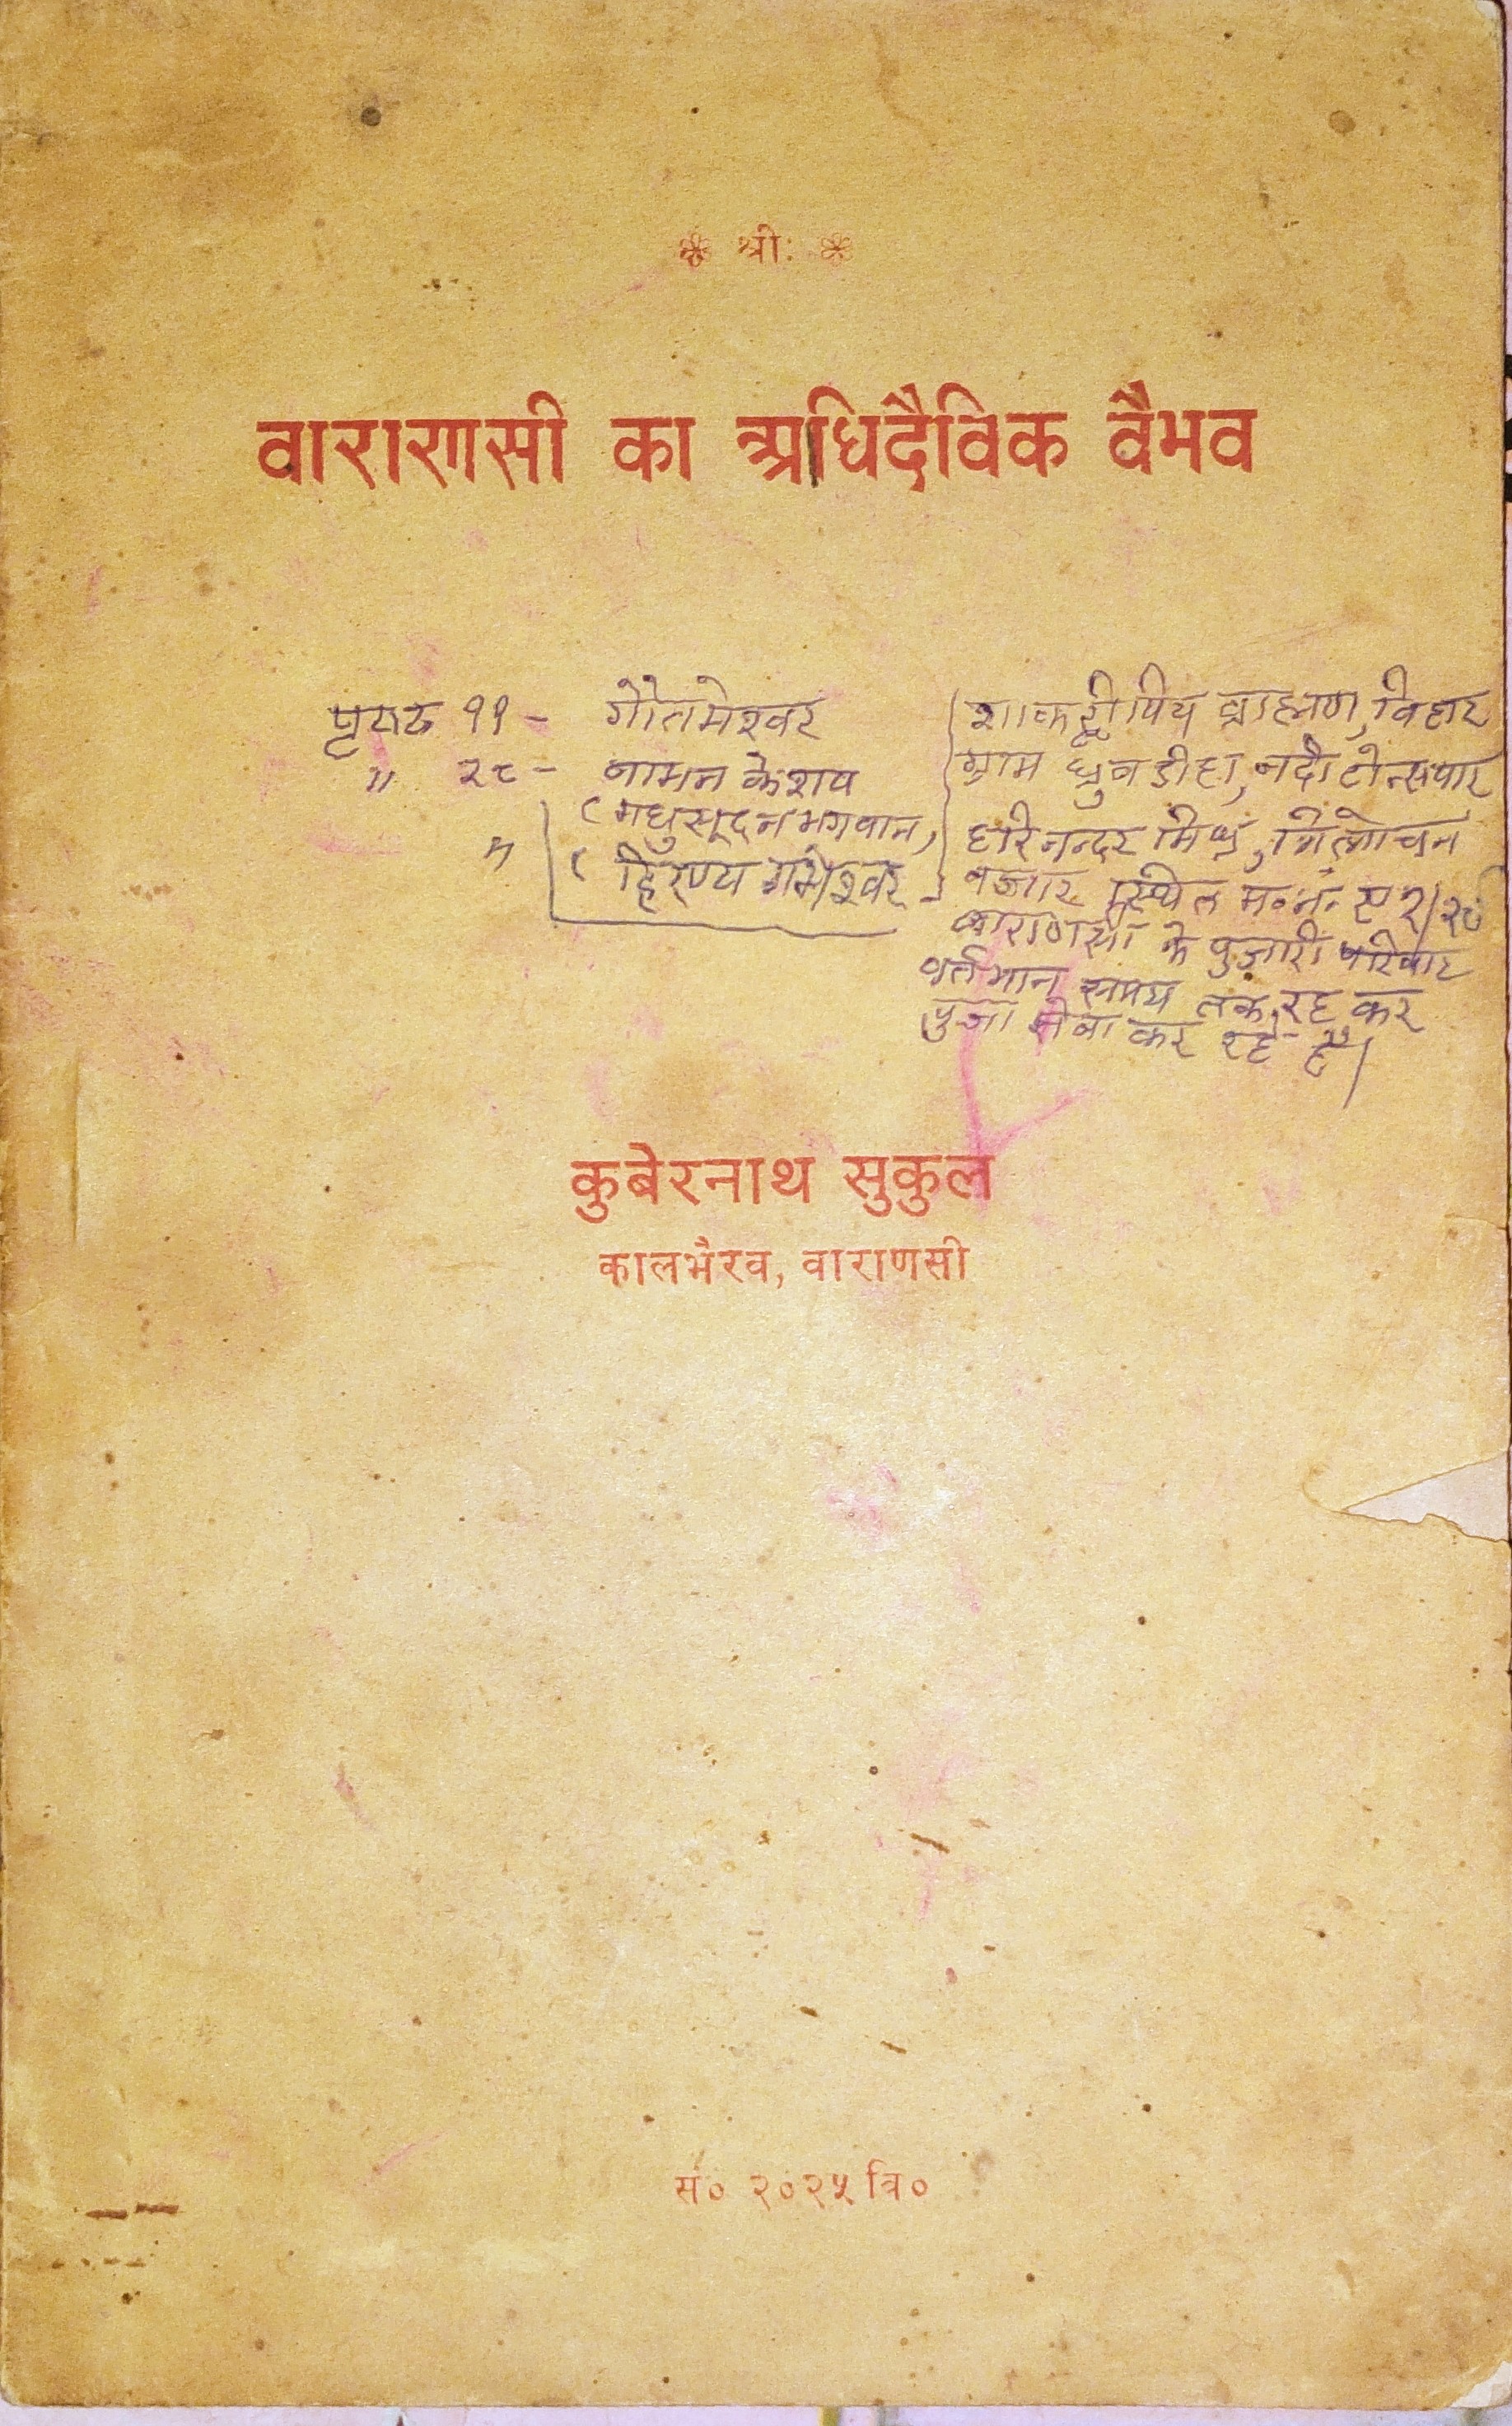 श्रीः
वाराणसी का अधिदैविक वैभव
पृष्ठ ११ - गौतमेश्वर
" २८ - वामन केशव
(मधुसूदन भगवान,
" ( हिरण्य गर्भेश्वर
शाकद्वीपिय ब्राह्मण, विहार
ग्राम ध्रुव डीहा, नदी टोन्सपार
हरिनन्दर मिश्र, त्रिलोचन
बजार स्थित म॰ नं॰ ए १/२८
वाराणसी के पुजारी परिवार
वर्तमान समय तक रह कर
पुजा सेवा कर रहे हैं।
कुबेरनाथ सुकुल
कालभैरव, वाराणसी
सं० २०२५ वि०